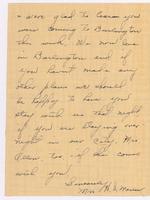 & were glad to learn you
were coming to Burlington
this week. We now live
in Burlington and if
you haven't made any
other plans we should
be happy to have you
stay with us that night
if you are staying over
night in our City. Mrs
too, if she comes
with you
Sincerely
Mrs